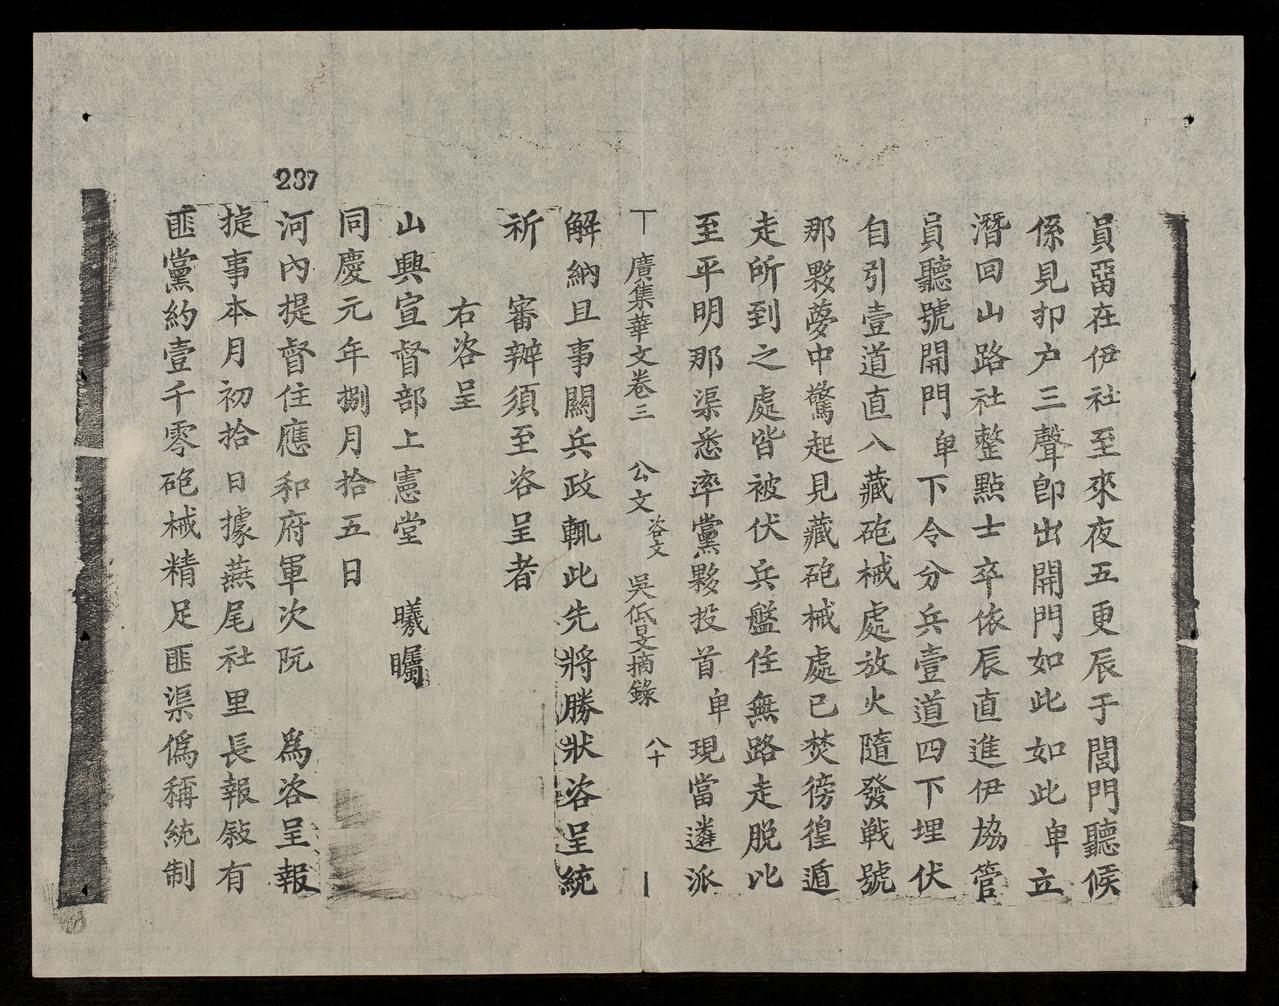 員畱在伊社至來夜五更辰于閭門聽候
係見卬户三聲卽出開門如此如此卑立
潛回山路社整點士卒依辰直進伊協管
員聽號開門卑下令分兵壹道四下埋伏
自引壹道直入藏砲械處放火隨發戰號
那夥夢中驚起見藏砲械處已焚徬徨遁
走所到之處皆被伏兵艦住無路走脫此
至平明那渠悉率黨夥投首卑現當遴派
廣集華文卷三 公文 咨文 吳低旻摘錄 八十
解納且事關兵政輒此先將勝狀咨呈統
祈 審辦須至咨呈者
右咨呈
山興宣督部上憲堂 曦矚
同慶元年捌月拾五日
237
河內提督住應和府軍次阮 爲咨呈報
㨗事本月初拾日據燕尾社里長報敍有
匪黨約壹千零砲械精足匪渠僞稱統制